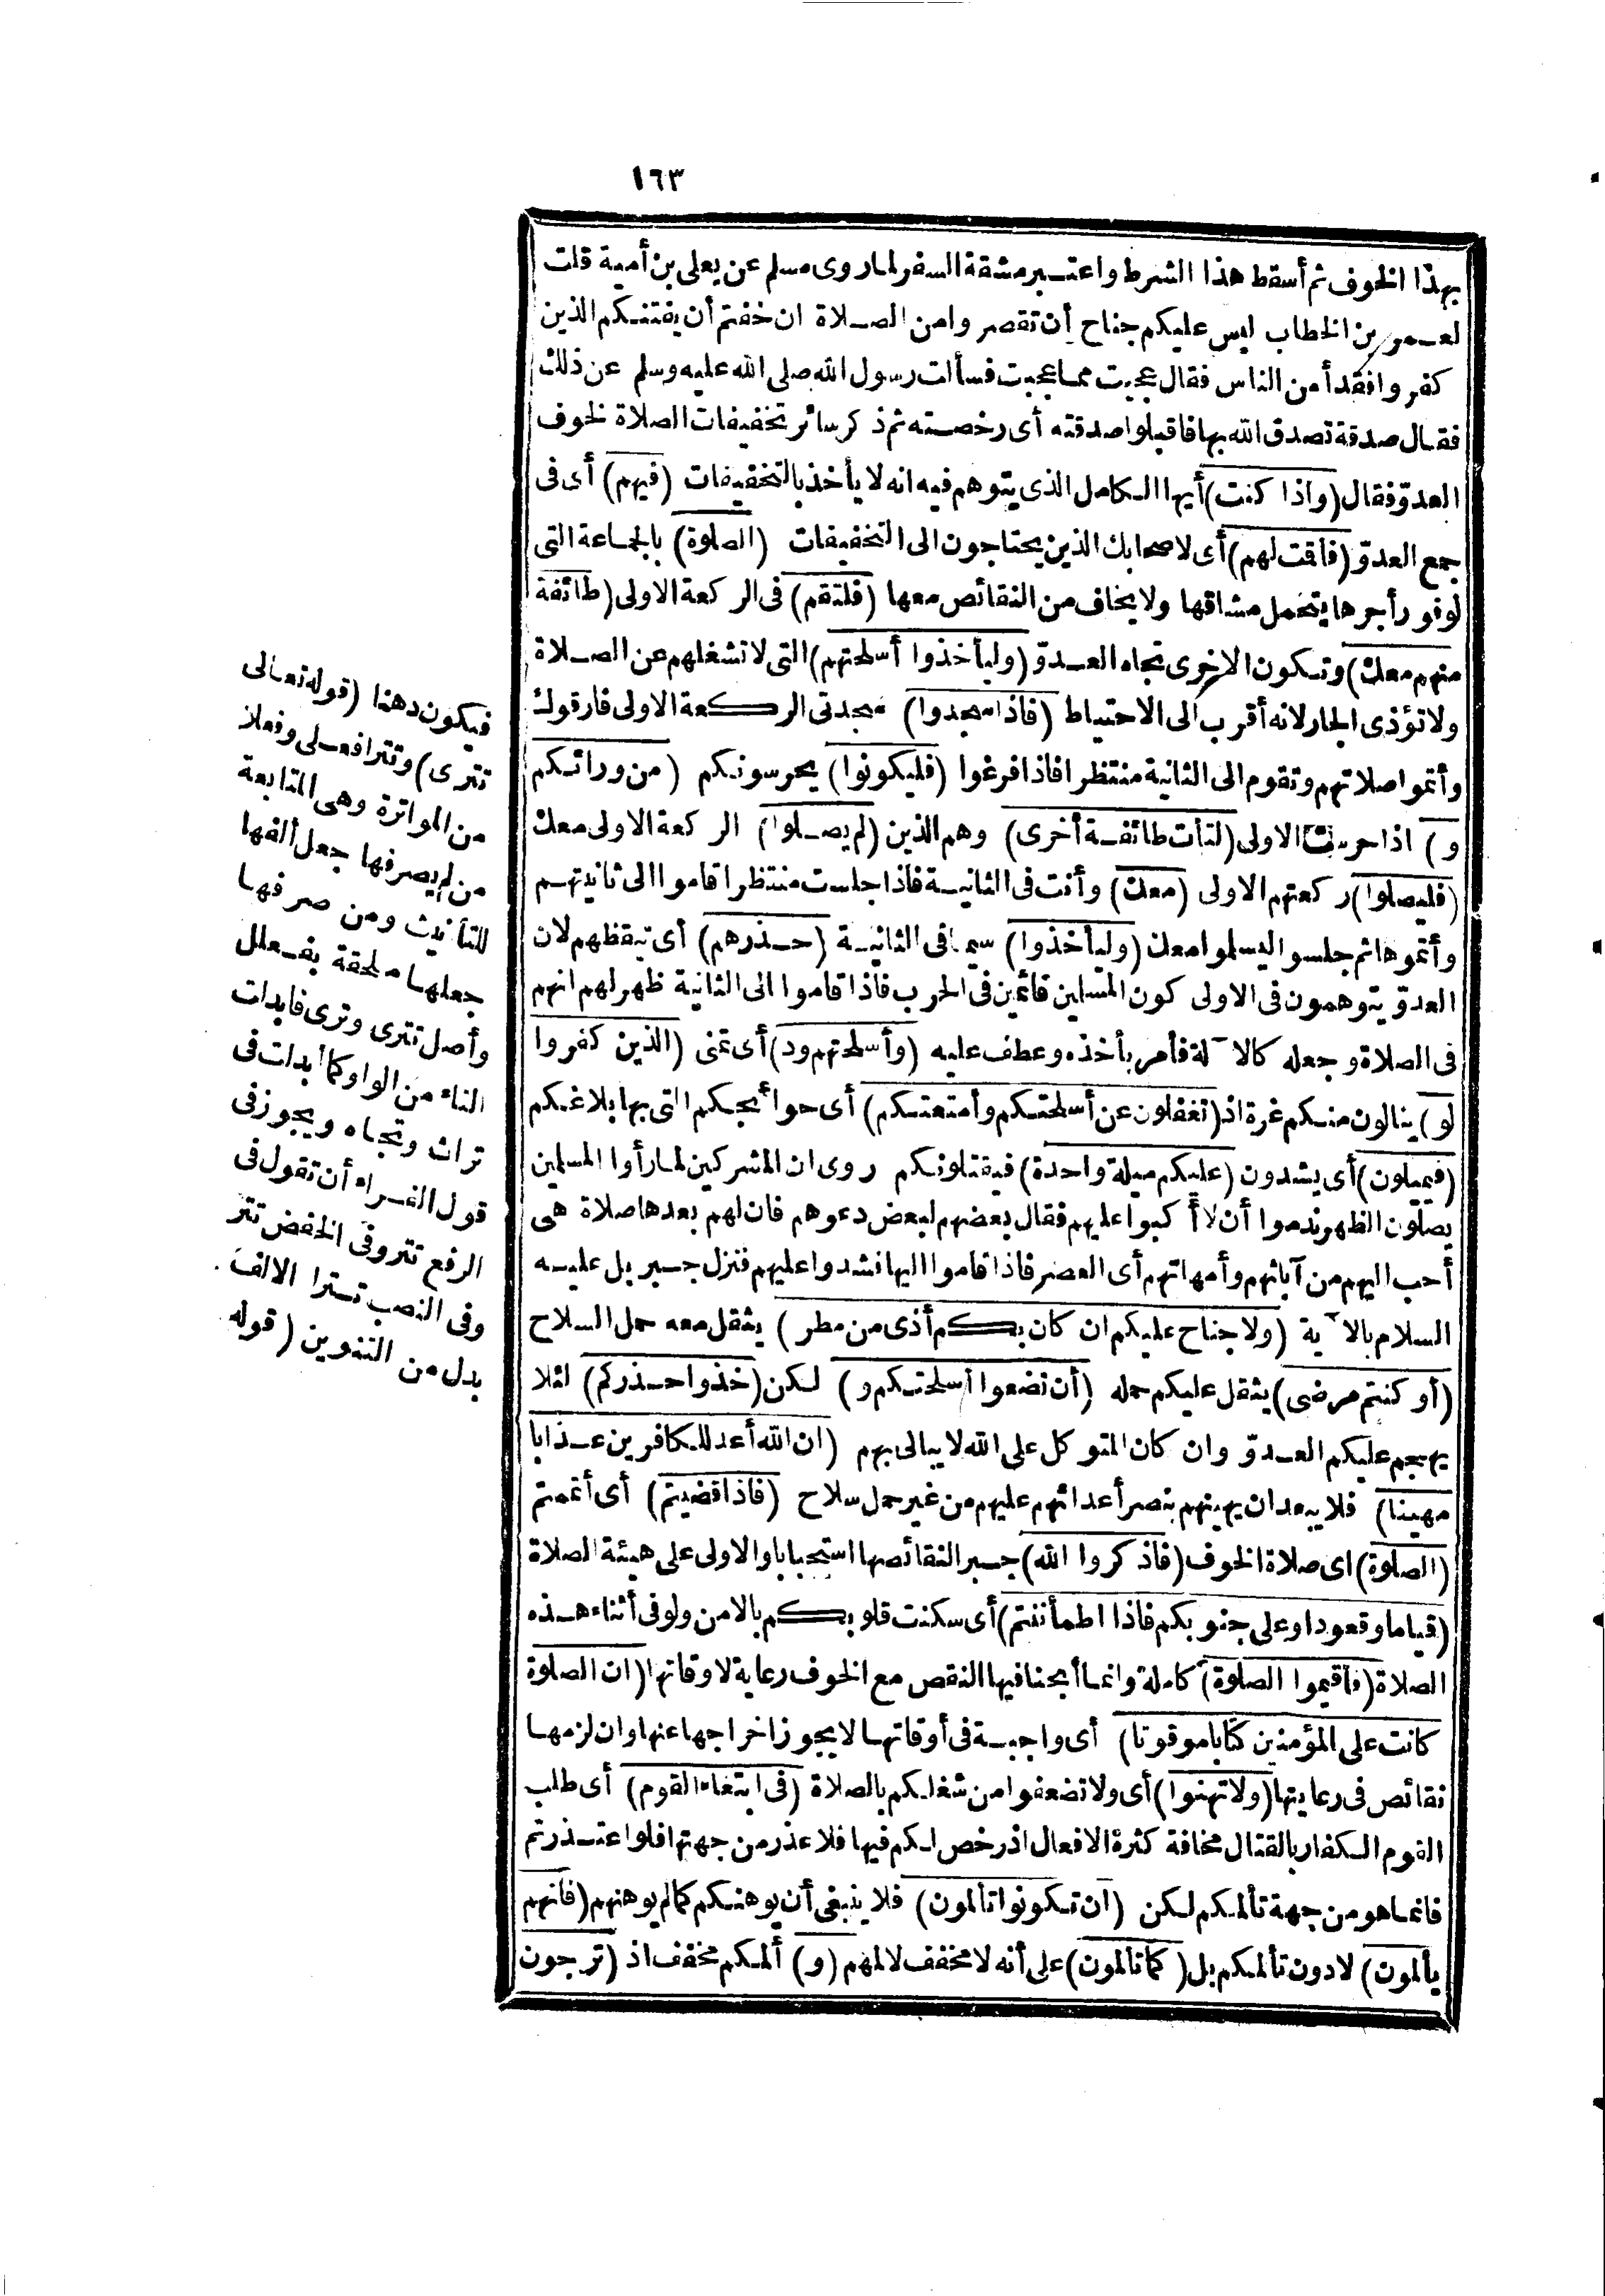 ١٦٣
بهذا الخوف ثم أسقط هذا الشرط واعتبر مشقة السفر لما روى مسلم عن يعلى بن أمية قلت
لعمر بن الخطاب ليس عليكم جناح أن تقصروا من الصلاة ان خفتم أن يفتنكم الذين
كفروا فقد أمن الناس فقال عجبت مما عجبت فسألت رسول الله صلى الله عليه وسلم عن ذلك
فقال صدقة تصدق الله بها فاقبلوا صدقته أى رخصته ثم ذكر سائر تخفيفات الصلاة لخوف
العدوّ فقال (واذا كنت) أيها الكامل الذى يتوهم فيه انه لا يأخذ بالتخفيفات (فيهم) أى فى
جمع العدوّ (فأقمت لهم) أى لاصحابك الذين يحتاجون الى التخفيفات (الصلوة) بالجماعة التى
لوفور أجرها يتحمل مشاقها ولا يخاف من النقائص معها (فلتقم) فى الركعة الاولى (طائفة
منهم معك) وتكون الاخرى تجاه العدوّ (وليأخذوا أسلحتهم) التى لا تشغلهم عن الصلاة
ولا تؤذى الجار لانه أقرب الى الاحتياط (فاذا سجدوا) سجدتى الركعة الاولى فارقوك
وأتموا صلاتهم وتقوم الى الثانية منتظرا فاذا فرغوا (فليكونوا) يحرسونكم (من ورائكم
و) اذا حرست الاولى (لتأت طائفة أخرى) وهم الذين (لم يصلوا) الركعة الاولى معك
(فليصلوا) ركعتهم الاولى (معك) وأنت فى الثانية فاذا جلست منتظرا قاموا الى ثانيتهم
وأتموها ثم جلسوا ليسلموا معك (وليأخذوا) سيما فى الثانية (حذرهم) أى تيقظهم لان
العدوّ يتوهمون فى الاولى كون المسلمين قائمين فى الحرب فاذا قاموا الى الثانية ظهر لهم انهم
فى الصلاة وجعله كالآلة فأمر بأخذه وعطف عليه (وأسلحتهم ود) أى تمنى (الذين كفروا
لو) ينالون منكم غرة اذ (تغفلون عن أسلحتكم وأمتعتكم) أى حوائجكم التى بها بلاغكم
(فيميلون) أى يشدون (عليكم ميلة واحدة) فيقتلونكم روى ان المشركين لما رأوا المسلمين
يصلون الظهر ندموا أن لا أكبوا عليهم فقال بعضهم لبعض دعوهم فان لهم بعدها صلاة هى
أحب اليهم من آبائهم وأمهاتهم أى العصر فاذا قاموا اليها فشدوا عليهم فنزل جبريل عليه
السلام بالآية (ولا جناح عليكم ان كان بكم أذى من مطر) يثقل معه حمل السلاح
(أو كنتم مرضى) يثقل عليكم حمله (أن تضعوا أسلحتكم و) لكن (خذوا حذركم) لئلا
يهجم عليكم العدوّ وان كان المتوكل على الله لا يبالى بهم (ان الله أعد للكافرين عذابا
مهينا) فلا يبعد ان يهينهم بنصر أعدائهم عليهم من غير حمل سلاح (فاذا قضيتم) أى أتممتم
(الصلوة) اى صلاة الخوف (فاذكروا الله) جبر النقائصها استحبابا والاولى على هيئة الصلاة
(قياما وقعودا وعلى جنوبكم فاذا اطمأننتم) أى سكنت قلوبكم بالامن ولو فى أثناء هذه
الصلاة (فأقيموا الصلوة) كاملة وانما أبحنا فيها النقص مع الخوف رعاية لاوقاتها (ان الصلوة
كانت على المؤمنين كتابا موقوتا) أى واجبة فى أوقاتها لا يجوز اخراجها عنها وان لزمها
نقائص فى رعايتها (ولا تهنوا) أى ولا تضعفوا من شغلكم بالصلاة (فى ابتغاء القوم) أى طلب
القوم الكفار بالقتال مخافة كثرة الافعال اذ رخص لكم فيها فلا عذر من جهتها فلو اعتذرتم
فانما هو من جهة تألمكم لكن (ان تكونوا تألمون) فلا ينبغى أن يوهنكم كما لم يوهنهم (فانهم
يألمون) لا دون تألمكم بل (كما تألمون) على أنه لا مخفف لالمهم (و) ألمكم مخفف اذ (ترجون
فيكون دهنا (قوله تعالى
تترى) وتترا فعلى وفعلا
من المواترة وهى المتابعة
من لم يصرفها جعل ألفها
للتأنيث ومن صرفها
جعلها ملحقة بفعلل
وأصل تترى وترى فابدلت
التاء من الواو كما أبدلت فى
تراث وتجاه ويجوز فى
قول الفراء أن تقول فى
الرفع تتر وفى الخفض تتر
وفى النصب تترا الالف
بدل من التنوين (قوله